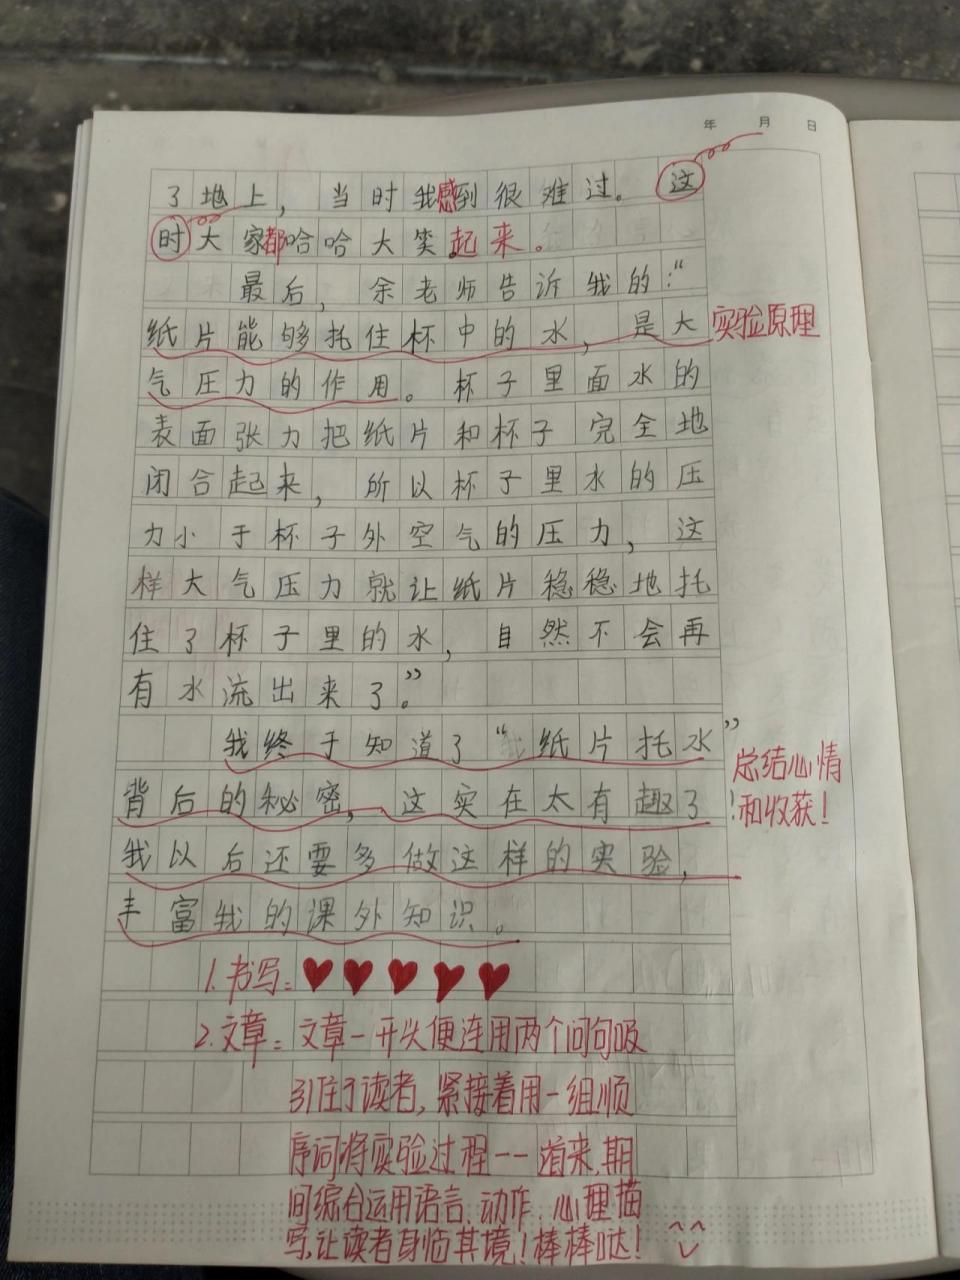 年 月 日
了地上，当时我感到很难过。这
时大家都哈哈大笑起来。
最后，余老师告诉我的：“
纸片能够托住杯中的水，是大
实验原理
气压力的作用。杯子里面水的
表面张力把纸片和杯子完全地
闭合起来，所以杯子里水的压
力小于杯子外空气的压力，这
样大气压力就让纸片稳稳地托
住了杯子里的水，自然不会再
有水流出来了。”
我终于知道了“纸片托水”
背后的秘密，这实在太有趣了！
总结心情
和收获！
我以后还要多做这样的实验，
丰富我的课外知识。
1.书写：♥♥♥♥♥
2.文章：文章一开头便连用两个问句吸
引住了读者，紧接着用一组顺
序词将实验过程一一道来，期
间综合运用语言、动作、心理描
写，让读者身临其境！棒棒哒！